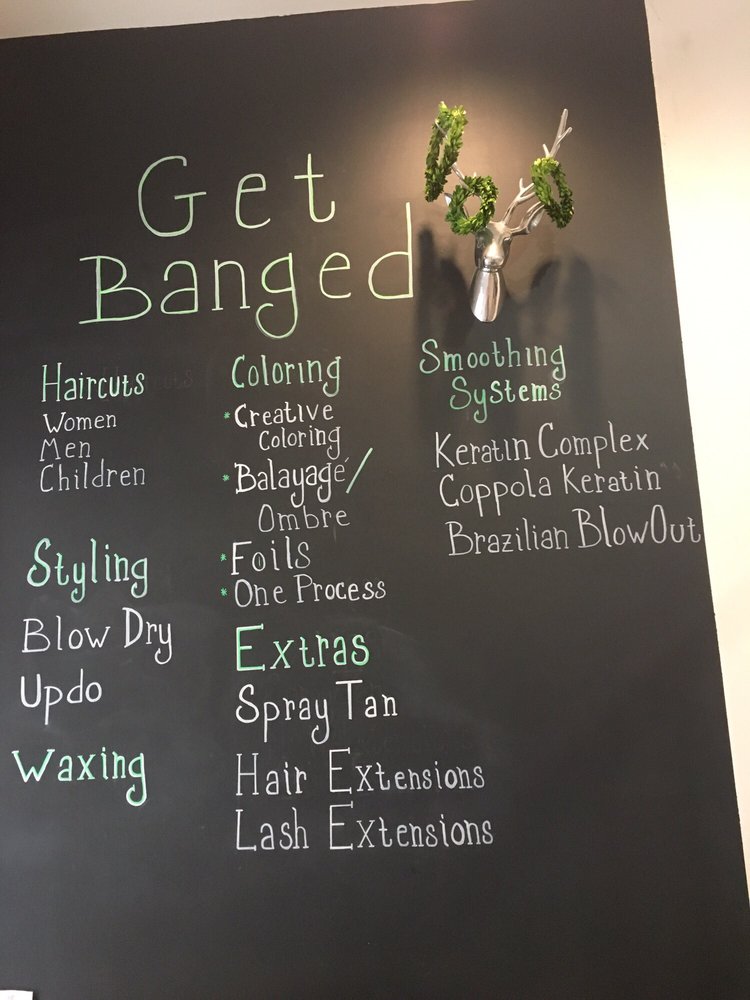 Get
Banged
Haircuts
Women
Men
Children
Styling
Blow Dry
Updo
Waxing
Coloring
*Creative
Coloring
*Balayage/
Ombre
*Foils
*One Process
Extras
Spray Tan
Hair Extensions
Lash Extensions
Smoothing
Systems
Keratin Complex
Coppola Keratin
Brazilian BlowOut